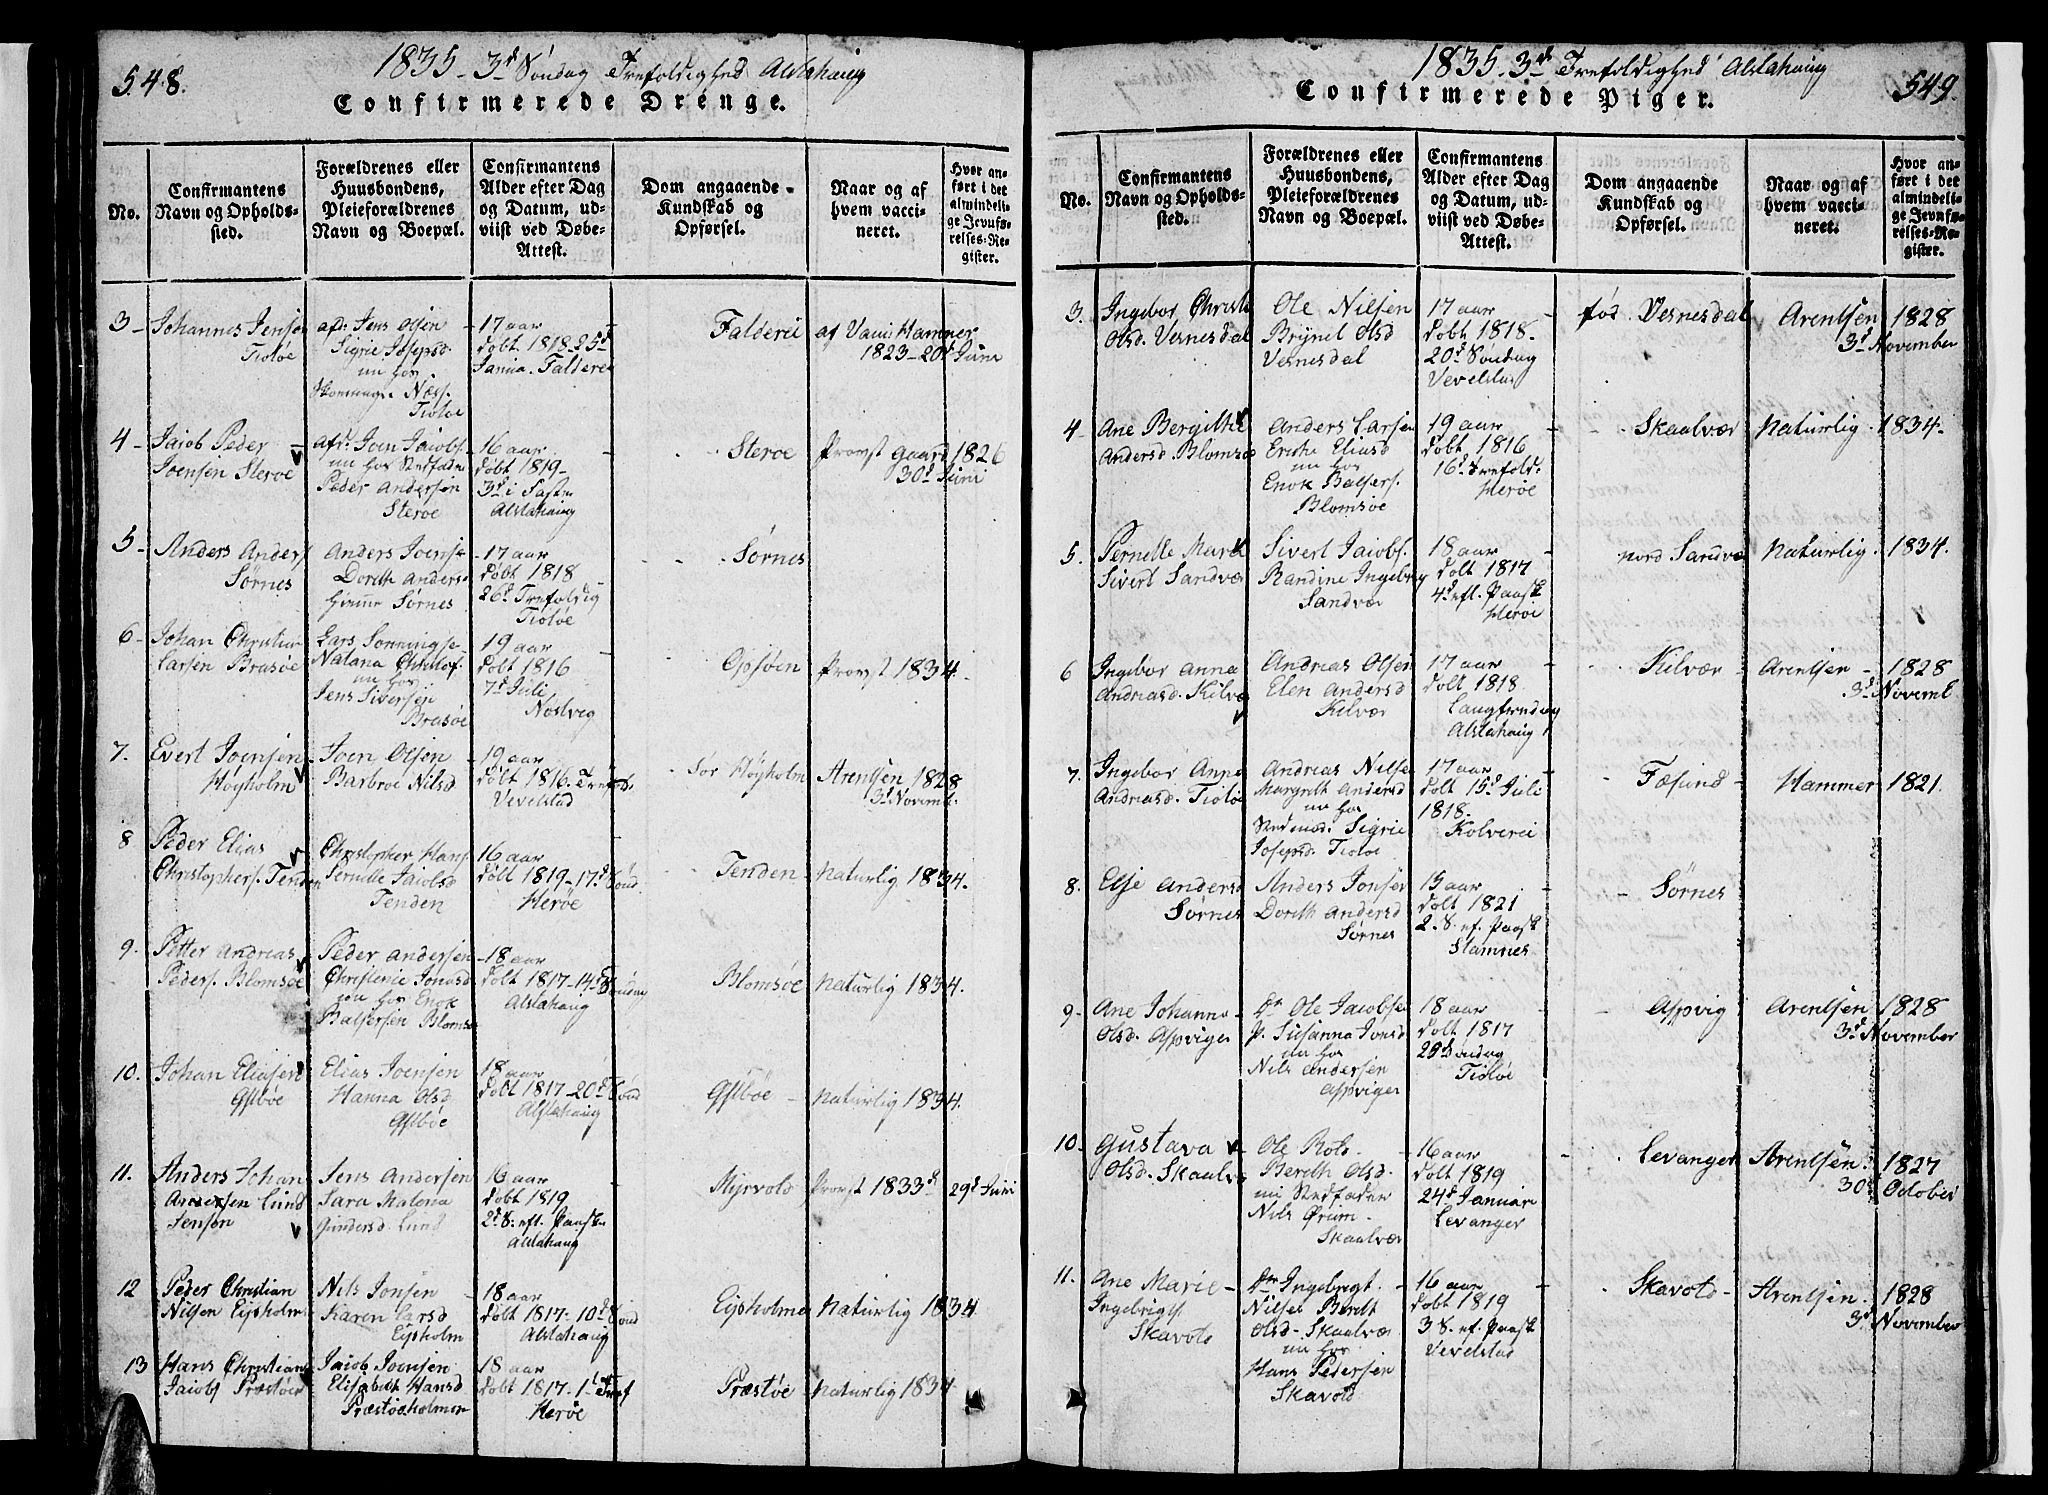 548.
1835 - 3d Søndag Trefoldighed Alstahaug
Confirmerede Drenge.
No.
Confirmantens
Navn og Opholds-
sted.
Forældrenes eller
Huusbondens,
Pleieforældrenes
Navn og Boepæl.
Confirmantens
Alder efter Dag
og Datum, ud-
viist ved Døbe-
Attest.
Dom angaaende
Kundskab og
Opførsel.
Naar og af
hvem vacci-
neret.
Hvor an-
ført i det
almindeli-
ge Jevnfø-
relses-Re-
gister.
3 - Johannes Jensen
Tiotøe
afd: Jens Olsen
Sigrie Josepsd.
nu hos
Næss.
Tiotøe
17 aar
døbt 1818 - 25d
Janua. Falderei
Falderei
af Vaci Hammer
1823 - 20d Juni
4 - Jacob Peder
Joensen Sterøe
afd: Joen Jacobs.
nu hos Stedfader
Peder Andersen
Sterøe
16 aar
døbt 1819 -
3d i Faste
Alstahaug
Sterøe
Provst Gaard 1826
30d Juni
5 - Anders Anders.
Sørnes
Anders Joense
Doreth Anders.
Hiemme Sørnes
17 aar
døbt 1818
26d Trefoldig
Tiotøe
Sørnes
6 - Johan Christian
Larsen Brasøe
Lars Sonningse
Natana Christof.
nu hos
Jens Siversen
Brasøe
19 aar
døbt 1816
7d Juli
Nostvig
Opsøen
Provst 1834.
7. Evert Joensen
Høyholm
Joen Olsen
Barbroe Nilsd
19 aar
døbt 1816. Trefold.
Vevelstad
Sør Høyholm
Arentsen 1828
3d Novemb.
8 Peder Elias
Christophers. Tenden
Christopher Hans.
Pernille Jacobsd
Tenden
16 aar
døbt 1819 - 17d Sønd.
Herøe
Tenden
Naturlig 1834.
9. Petter Andreas
Peders. Blomsøe
Peder Andersen
Christenie Jonasd
nu hos Enok
Baltsersen Blomsø
18 aar
døbt 1817 - 14d Søndag
Alstahaug
Blomsøe
Naturlig 1834.
10. Johan Eliasen
Giftbøe
Elias Joensen
Hanna Olsd
Giftbøe
18 aar
døbt 1817 - 20d Sønd
Alstahaug
Giftbøe
Naturlig 1834.
11. Anders Johan
Andersen Lund
Jensen
Jens Andersen
Sara Malena
Gundersd Lund
16 aar
døbt 1819
2d S. eft. Paaske
Alstahaug
Myrvold
Provst 1833d 29d Juni
12 Peder Christian
Nilsen Eysholm
Nils Jonsen
Karen Larsd
Eysholm
18 aar
døbt 1817 - 10d Sønd
Alstahaug
Eysholme
Naturlig 1834
13 Hans Christian
Jacobs Præstøe
Jacob Joensen
Elisabeth Hansd
Præstøeholmen
18 aar
døbt 1817 - 1ste Tref
Herøe
Præstøe
Naturlig 1834
549.
1835 - 3d Trefoldighed Alstahaug
Confirmerede Piger.
No.
Confirmantens
Navn og Opholds-
sted.
Forældrenes eller
Huusbondens,
Pleieforældrenes
Navn og Boepæl.
Confirmantens
Alder efter Dag
og Datum, ud-
viist ved Døbe-
Attest.
Dom angaaende
Kundskab og
Opførsel.
Naar og af
hvem vacci-
neret.
Hvor an-
ført i det
almindeli-
ge Jevnfø-
relses-Re-
gister.
3. Ingebor Christi
Olsd. Vesnesdal
Ole Nilsen
Brynel Olsd
Vesnesdal
17 aar
døbt 1818 -
20d Søndag
Vevelstad
fød Vesnesdal
Arentsen 1828
3d November
4 Ane Bergithe
Andersd Blomsøe
Anders Larsen
Eliasd
nu hos
Enok Baltsers.
Blomsøe
19 aar
døbt 1816
16d Trefold.
Herøe
Skaalvær
Naturlig 1834.
5. Pernelle Marta
Sivert Sandvær
Sivert Jacobs.
Randine Ingebrig
Sandvær
18 aar
døbt 1817
4d eft. Paask
Herøe
Nord Sandvær
Naturlig 1834.
6 Ingebor Anna
Andreasd. Kilvæ
Andreas Olsen
Elen Andersd
Kilvær
17 aar
døbt 1818
Langfredag
Alstahaug
Kilvær
Arentsen - 1828
3d Novemb.
7. Ingebor Anne
Andreasd. Tiotøe
Andreas Nilse
Margreth Andersd
nu hos
Stedmod. Sigrie
Josepsd. Tiotøe
17 aar
døbt 15d Juli
1818 -
Kolverei
Fosund
Hammer 1821.
8. Else Andersd
Sørnes
Anders Jonsen
Doreth Andersd
Sørnes
15 aar
døbt 1821
2. S. ef. Paask
Stamnes
Sørnes
9 - Ane Johanna
Olsd. Aspviger
Dr Ole Jacobsen
P. Susanna Jonsd
nu hos
Nils Andersen
Aspviger
18 aar
døbt 1817
29d Søndag
Tiotøe
Aspvig
Arentsen 1828
3d November
10. Gustava
Olsd. Skaalvær
Ole Rold.
Bereth Olsd.
nu Stedfader
Nils Ørium
Skaalvær
16 aar
døbt 1819
24d Januar
Levanger
Levanger
Arentsen. 1827
30d October
11. Ane Marie
Ingebrigts.
Skavold
Dr Ingebrigt
Nilsen Beret
Olsd. Skaalvær
nu hos
Hans Pedersen
Skavold
16 aar
døbt 1819
3 S. ef. Paask
Vevelstad
Skavold
Arentsen 1828
3d November